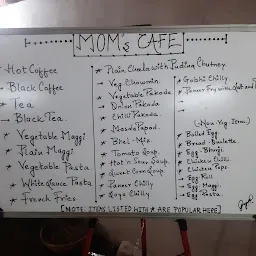 MOM's CAFE
* Hot Coffee
→ Black Coffee
* Tea
→ Black Tea.
* Vegetable Maggi
* Plain Maggi
* Vegetable Pasta
* White Sauce Pasta
* French Fries
* Plain Chala with Pudina Chutney.
→ Veg. Chowmin.
* Vegetable Pakoda
→ Onion Pakoda
* Chilli Pakoda.
* Masala Papad.
* Bhel-Mix
* Tomato Soup.
* Hot n Sour Soup.
* Sweet Corn Soup.
* Paneer Chilly
* Soya Chilly
* Gobhi Chilly
* Paneer Fry with Salt and
(Non-Veg Item)
* Boiled Egg
* Bread-Omlette
* Egg-Bhurji
* Chicken Chilly
* Chicken Pops
* Egg Roll
* Egg Maggi
* Egg Pasta
[NOTE: ITEMS LISTED WITH * ARE POPULAR HERE]